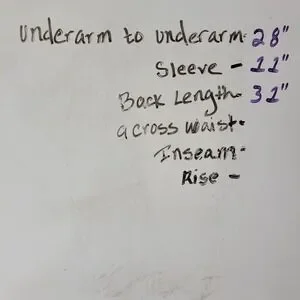 underarm to underarm- 28"
Sleeve - 11"
Back Length- 31"
across waist-
Inseam-
Rise -